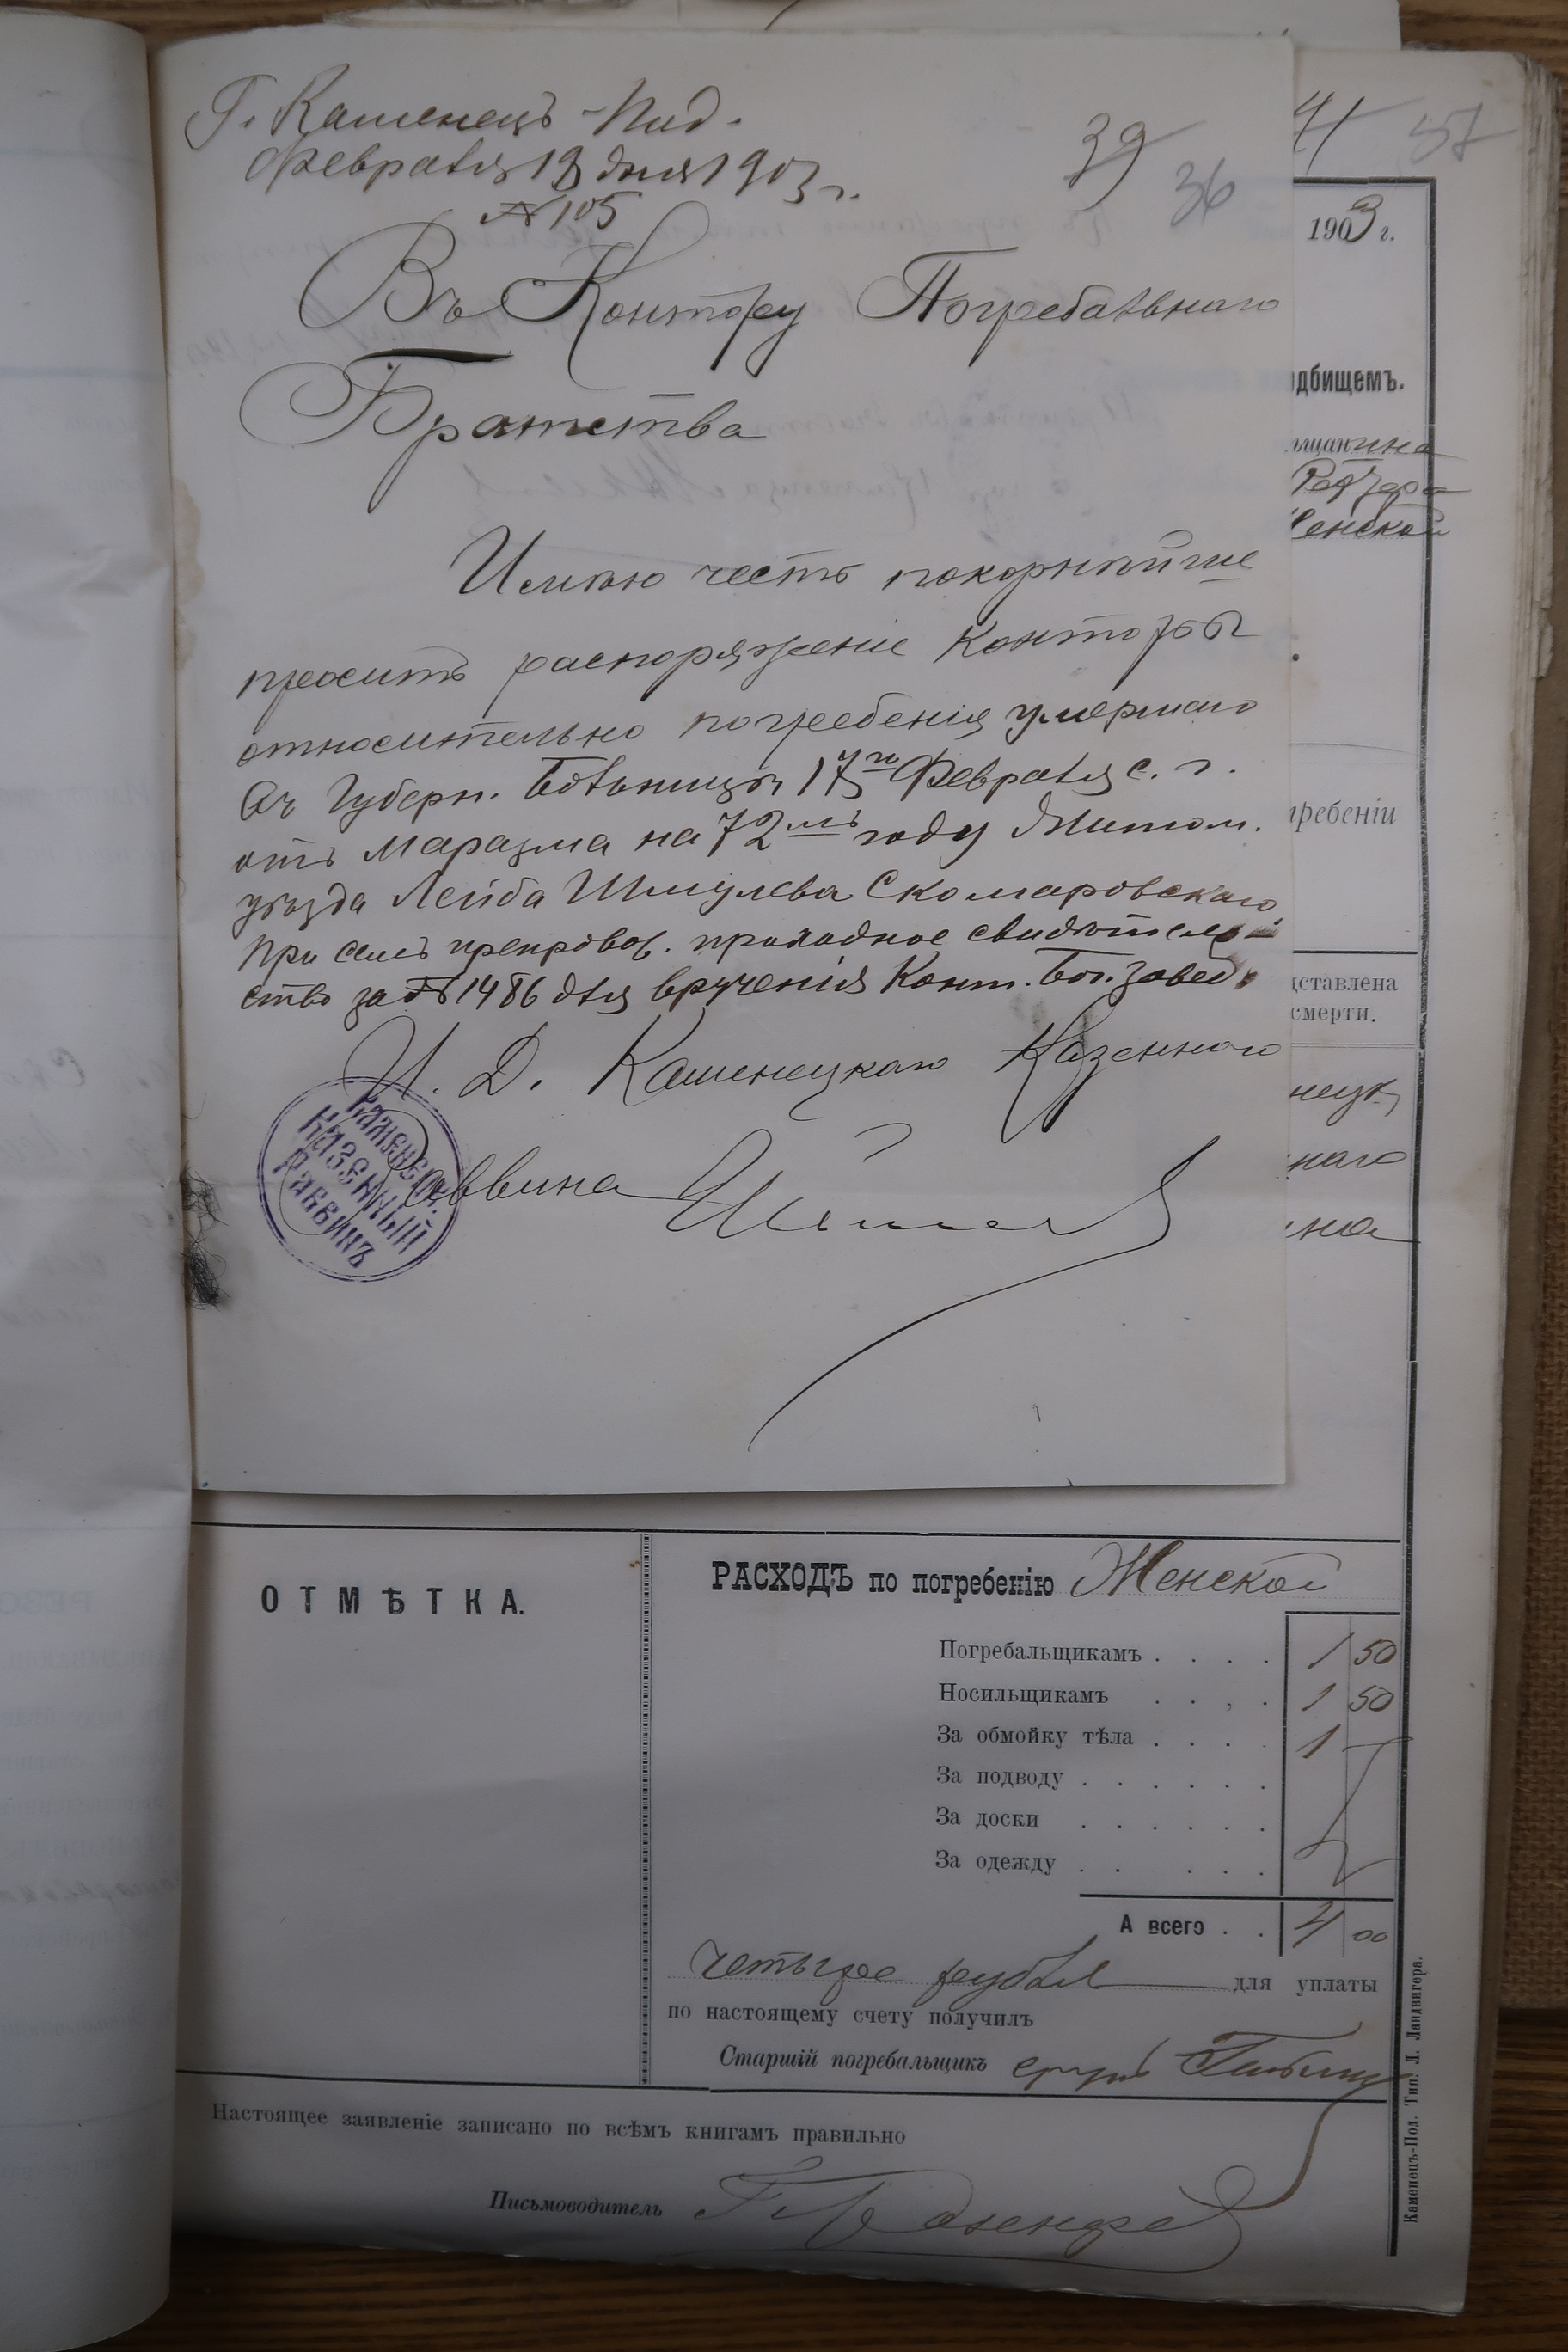 Г. Каменецъ-Под.
Февраля 19 дня 1903 г.
№ 105
39
36
Въ Контору Погребальнаго
Братства
Имѣю честь покорнѣйше
просить распоряженіе Конторы
относительно погребенія умершаго
въ Губерн. Больницѣ 17го Февраля с. г.
отъ Маразма на 72мъ году Житом.
уѣзда Лейба Шмулева Скомаровскаго
При семъ препровод. проходное свидѣтель-
ство за № 1486 для врученія Конт. Бог. завед.
И. Д. Каменецкаго Казеннаго
Раввина
Каменец.
Казенный
Раввинъ
41 37
1903 г.
одбищемъ.
ьщанина
Женской
гребеніи
дставлена
смерти.
нецк
наго
ина
ОТМѢТКА.
РАСХОДЪ по погребенію Женской
Погребальщикамъ . . . . 1 50
Носильщикамъ . . . . 1 50
За обмойку тѣла . . . . 1 —
За подводу . . . . . .
За доски . . . . . .
За одежду . . . . . .
А всего . . 4 00
четыре рубля для уплаты
по настоящему счету получилъ
Старшій погребальщикъ
Настоящее заявленіе записано по всѣмъ книгамъ правильно
Письмоводитель Г. Розенфе
Каменецъ-Под. Тип. Л. Ландвигера.